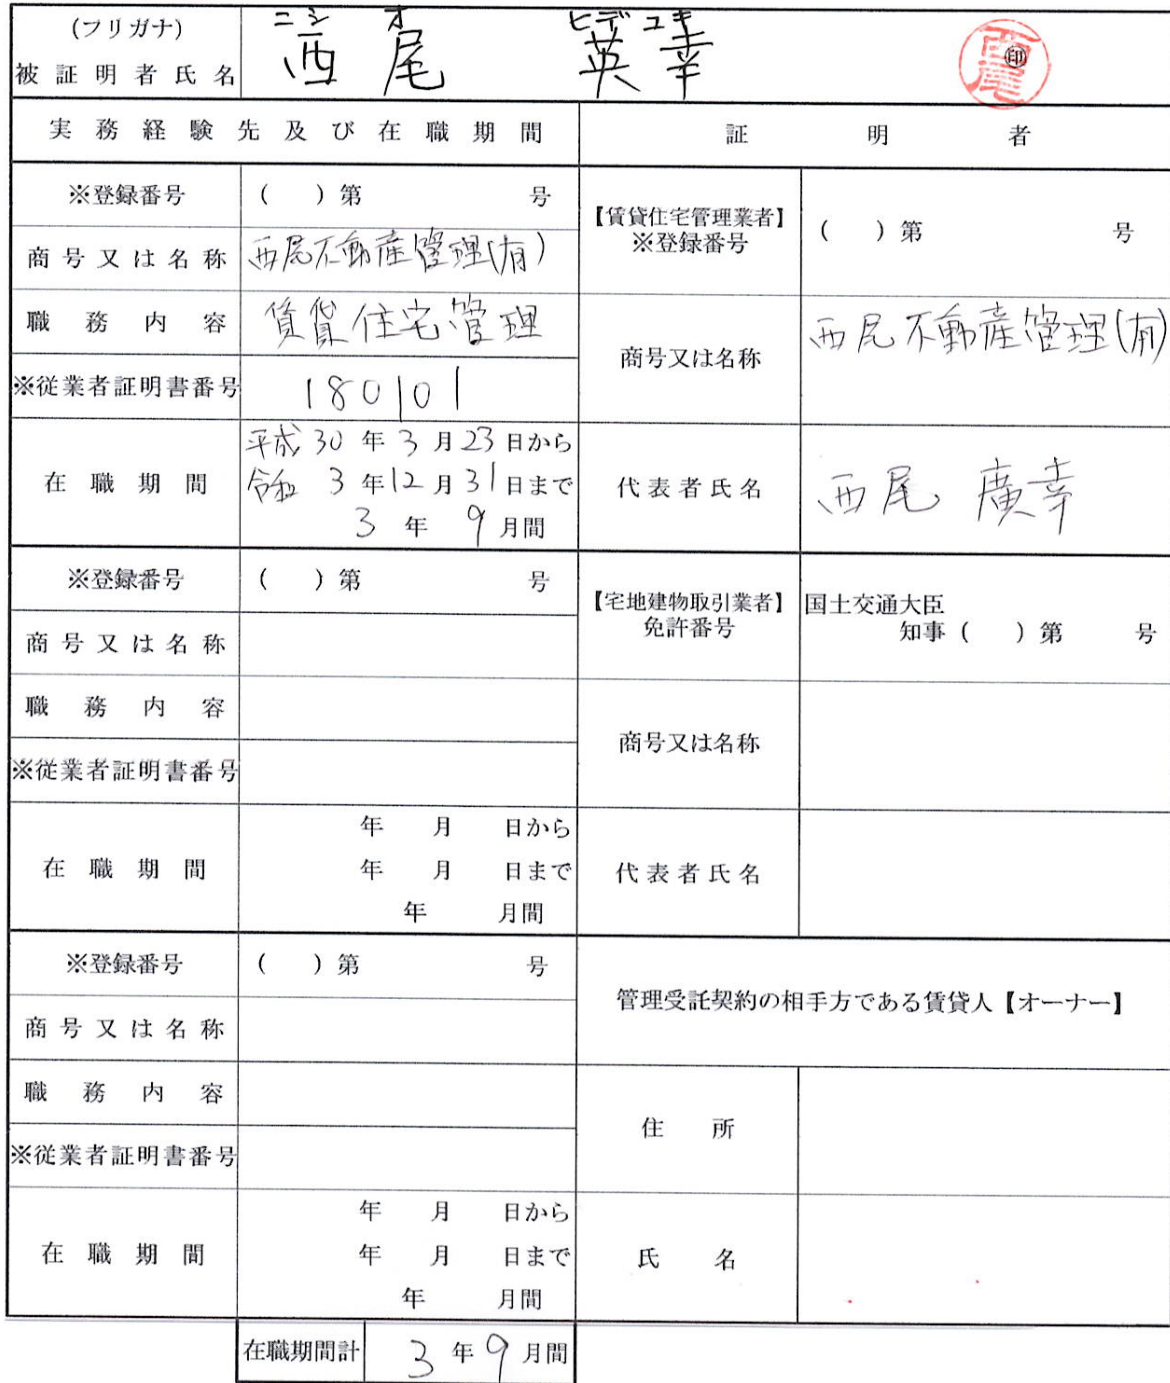 (フリガナ) ニシ オ ヒデユキ
被証明者氏名 西尾 英幸 ㊞ 西尾
実務経験先及び在職期間 証明者
※登録番号 ( )第 号
商号又は名称 西尾不動産管理(有)
職務内容 賃貸住宅管理
※従業者証明書番号 180101
在職期間 平成30年3月23日から
令和3年12月31日まで
3年9月間
【賃貸住宅管理業者】
※登録番号 ( )第 号
商号又は名称 西尾不動産管理(有)
代表者氏名 西尾 廣幸
※登録番号 ( )第 号
商号又は名称
職務内容
※従業者証明書番号
在職期間 年 月 日から
年 月 日まで
年 月間
【宅地建物取引業者】 国土交通大臣
免許番号 知事( )第 号
商号又は名称
代表者氏名
※登録番号 ( )第 号
商号又は名称
職務内容
※従業者証明書番号
在職期間 年 月 日から
年 月 日まで
年 月間
管理受託契約の相手方である賃貸人【オーナー】
住所
氏名
在職期間計 3年9月間